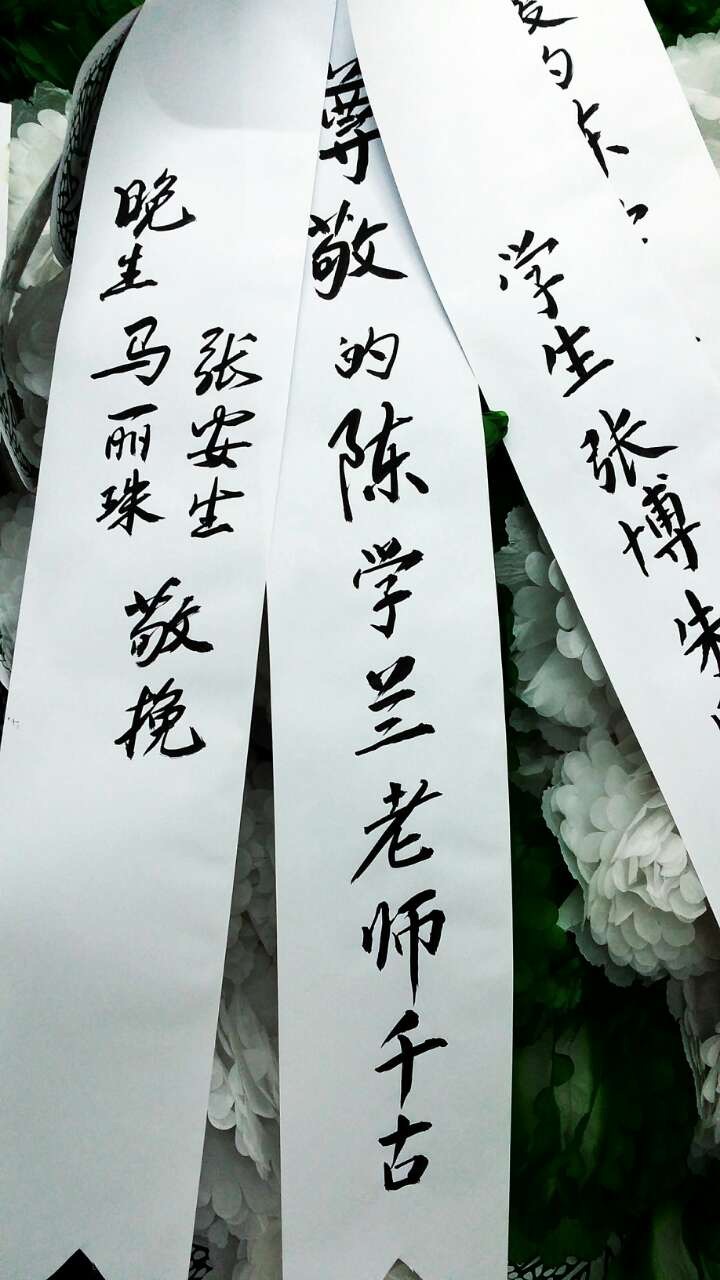 尊敬的陈学兰老师千古
晚生 马丽珠 张安生 敬挽
学生 张博